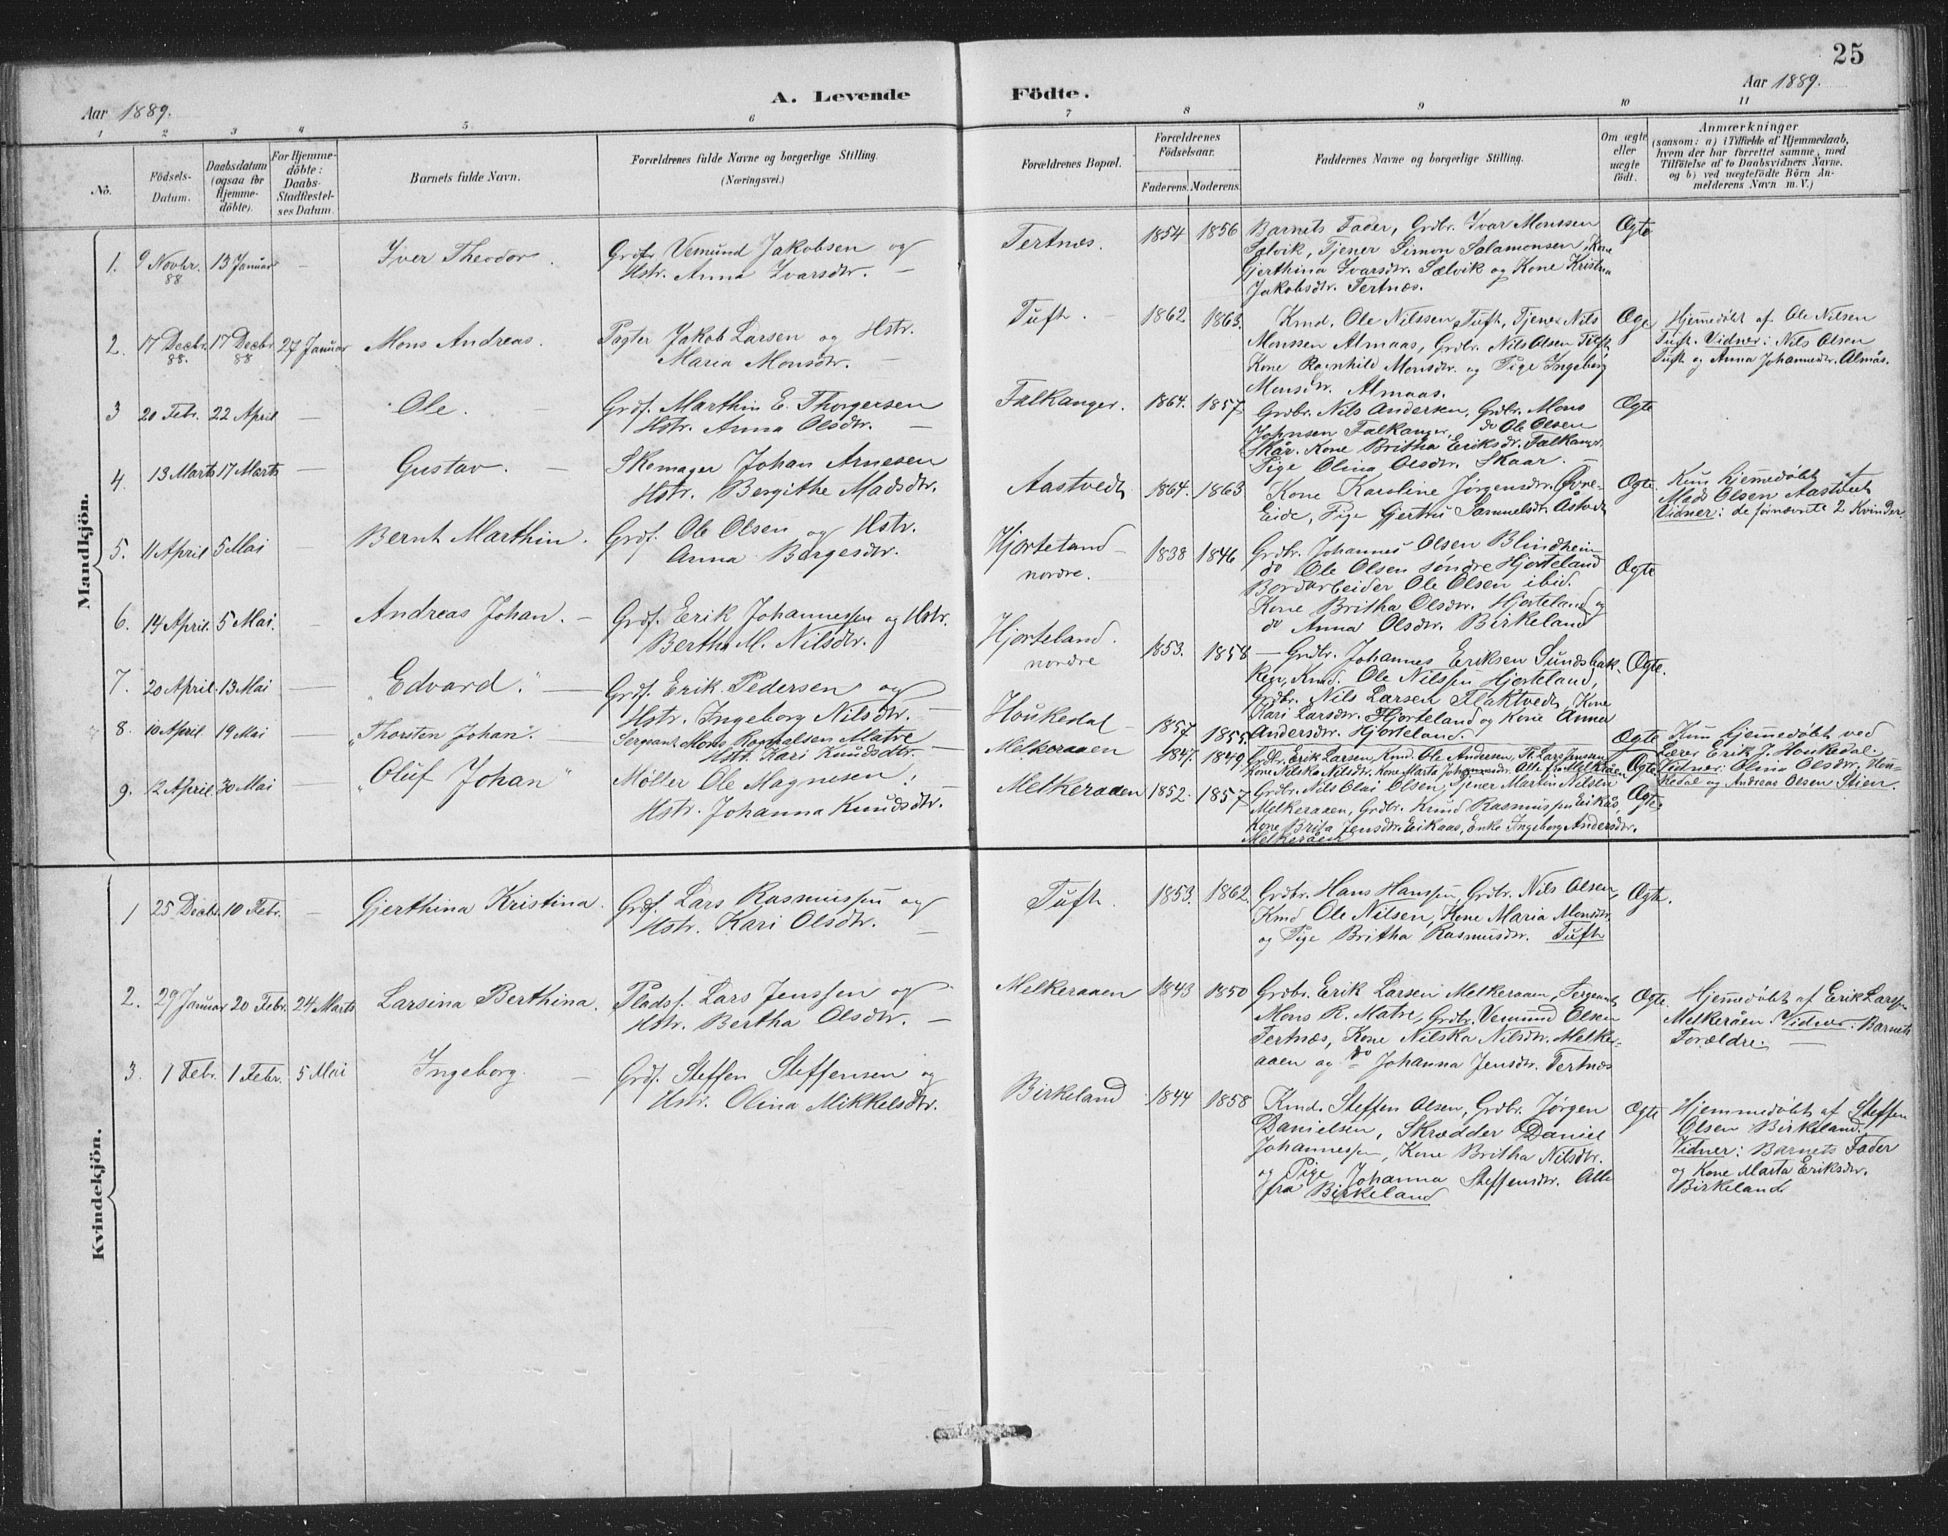 25
Aar 1889.
A. Levende Födte.
Aar 1889.
1 2 3 4 5 6 7 8 9 10 11
No.
Födsels-Datum.
Daabsdatum (ogsaa for Hjemme-döbte).
For Hjemme-döbte: Daabs-Stadfæstel-ses Datum.
Barnets fulde Navn.
Forældrenes fulde Navne og borgerlige Stilling.
(Næringsvei.)
Forældrenes Bopæl.
Forældrenes Födselsaar.
Faderens. Moderens.
Faddernes Navne og borgerlige Stilling.
Om ægte eller uægte födt.
Anmærkninger
(saasom: a) i Tilfælde af Hjemmedaab,
hvem der har forrettet samme, med
Tilföielse af to Daabsvidners Navne.
og b) ved uægtefödte Börn An-
melderens Navn m. V.)
Mandkjön.
1. 9 Novbr. 88 13 Januar — Iver Theodor. Grdf. Vemund Jakobsen og
Hstr. Anna Ivarsdtr. —
Tertnæs. 1854 1856 Barnets Fader, Grdbr. Ivar Monssen
Salvik, Tjener Simon Salamonsen, Kone
Gjerthina Ivarsdtr. Sælvik og Kone Kristna
Jakobsdtr. Tertnæs.
Ægte
2. 17 Decbr. 88. 17 Decbr. 88 27 Januar Mons Andreas. Pagter Jakob Larsen og Hstr.
Maria Monsdtr. —
Tuft. — 1862 1863. Kmd. Ole Nilssen Tuft, Tjener Nils
Monssen Almaas, Grdbr. Nils Olsen Tuft,
Kone Ragnhild Monsdtr. og Pige Ingeborg
Monsdtr. Almaas.
Ægte
Hjemmedøbt af Ole Nilsen
Tuft. Vidner: Nils Olsen
Tuft og Anna Johannedtr. Almås.
3 20 Febr. 22 April — Ole. — Grdf. Marthin E. Thorgersen
Hstr. Anna Olsdtr. —
Falkanger. 1864. 1857 Grdbr. Nils Andersen, Grdbr. Mons
Johnsen Falkanger, do Ole Olsen
Skår. Kone Britha Eriksdr. Falkanger.
Pige Olina Olsdtr. Skaar. —
Ægte
4. 13 Marts 17 Marts — Gustav. — Skomager Johan Arnesen
Hstr. Bergithe Madsdtr.
Aastvedt 1864. 1863 Kone Karoline Jørgensdr. Øvre-
Eide, Pige Gjertru Sammelsdr. Åstvedt
Ægte.
Kun hjemmedøbt af
Mads Olsen Aastvedt
Vidner: de førnævnte 2 Kvinder.
5. 11 April 5 Mai — Bernt Marthin. Grdf. Ole Olsen og Hstr.
Anna Børgesdtr.
Hjorteland —
nordre.
1838 1846 Grdbr. Johannes Olsen Blindheim
do Ole Olsen søndre Hjorteland
Bordarbeider Ole Olsen ibid.
Kone Britha Olsdtr. Hjorteland og
do Anna Olsdtr. Birkeland
Ægte
6. 14 April. 5 Mai. — Andreas Johan. — Grdf. Erik Johannessen og Hstr.
Bertha M. Nilsdtr.
Hjorteland.
nordre
1853. 1858 — Grdbr. Johannes Eriksen Sundsbak-
ken, Kmd. Ole Nilssen Hjorteland,
Grdbr. Nils Larsen Flaktvedt, Kone
Kari Larsdtr. Hjorteland og Kone Anna
Andersdtr. Hjorteland.
Ægte.
7. 20 April. 13 Mai — "Edvard." — Grdf. Erik Pedersen og
Hstr. Ingeborg Nilsdtr. —
Houkedal — 1857. 1855.
Ægte
Kun hjemmedøbt ved
Lærer Erik J. Houkedal.
Vidner: Olina Olsdtr. Hou-
kedal og Andreas Olsen Stien.
8. 10 April 19 Mai — "Thorsten Johan." — Sergeant Mons Ragnvalsen Matre
Hstr. Kari Knudsdtr. —
Melkeraaen 1847. 1849 Grdbr. Erik Larsen, Kmd. Ole Andersen, Pl. Lars Jenssen
Kone Nilska Nilsdtr. Kone Marta Johannesdr. Alle fra Melkråen
Ægte
9. 12 April. 30 Mai — "Oluf Johan" Møller Ole Magnesen.
Hstr. Johanna Knudsdtr.
Melkeraaen 1852. 1857 Grdbr. Nils Olai Olsen, Tjener Martin Nilsen
Melkeraaen, Grdbr. Knud Rasmussen Eikås,
Kone Brita Jensdtr. Eikaas, Enke Ingeborg Andersdtr.
Melkeråen
Ægte
Kvindekjön.
1 25 Decbr. 10 Febr. — Gjerthina Kristina. Grdf. Lars Rasmussen og
Hstr. Kari Olsdtr. —
Tuft. 1853. 1862. Grdbr. Hans Hanssen, Grdbr. Nils Olsen,
Kmd Ole Nilsen, Kone Maria Monsdtr.
og Pige Britha Rasmusdtr. Tuft
Ægte.
2. 29 Januar 20 Febr. 24 Marts Larsina Berthina. Pladsf. Lars Jenssen og
Hstr. Bertha Olsdtr. —
Melkeraaen 1843 1850 Grdbr. Erik Larsen Melkeraaen, Sergeant
Mons R. Matre, Grdbr. Vemund Olsen
Tertnæs, Kone Nilska Nilsdtr. Melker-
aaen og do Johanna Jensdtr. Tertnæs
Ægte.
Hjemmedøbt af Erik Larsen
Melkeråen. Vidner: Barnets
Forældre. —
3. 1 Febr. 1 Febr. 5 Mai Ingeborg. — Grdf. Steffen Steffensen og
Hstr. Olina Mikkelsdtr.
Birkeland 1844 1858 Kmd. Steffen Olsen, Grdbr. Jørgen
Danielsen, Skrædder Daniel
Johannessen, Kone Britha Nilsdtr.
og Pige Johanna Steffensdtr. Alle
fra Birkeland
Ægte
Hjemmedøbt af Steffen
Olsen Birkeland.
Vidner: Barnets Fader
og Kone Marta Eriksdtr.
Birkeland